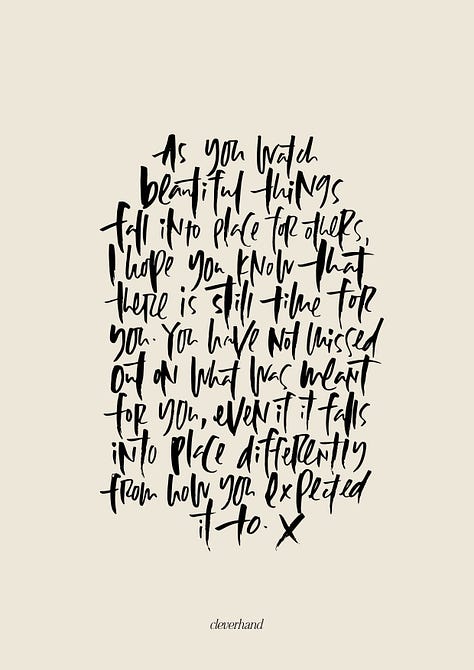 As you watch
beautiful things
fall into place for others,
I hope you know that
there is still time for
you. You have not missed
out on what was meant
for you, even if it falls
into place differently
from how you expected
it to. X
cleverhand